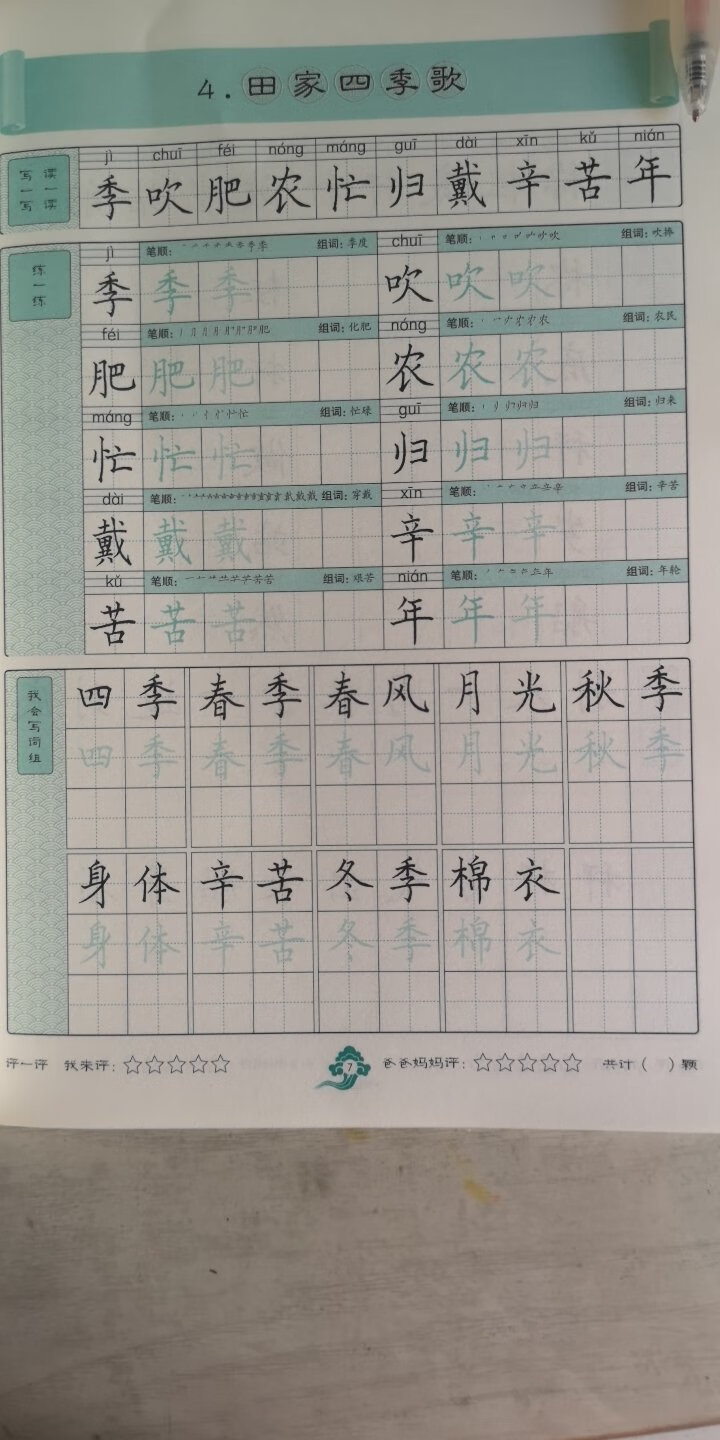 4.田家四季歌
读一读
写一写
jì chuī féi nóng máng guī dài xīn kǔ nián
季 吹 肥 农 忙 归 戴 辛 苦 年
练一练
jì 笔顺: 组词:季度 chuī 笔顺: 组词:吹捧
季 季 季 吹 吹 吹
féi 笔顺: 组词:化肥 nóng 笔顺: 组词:农民
肥 肥 肥 农 农 农
máng 笔顺: 组词:忙碌 guī 笔顺: 组词:归来
忙 忙 忙 归 归 归
dài 笔顺: 组词:穿戴 xīn 笔顺: 组词:辛苦
戴 戴 戴 辛 辛 辛
kǔ 笔顺: 组词:艰苦 nián 笔顺: 组词:年轮
苦 苦 苦 年 年 年
我会写词组
四季 春季 春风 月光 秋季
四季 春季 春风 月光 秋季
身体 辛苦 冬季 棉衣
身体 辛苦 冬季 棉衣
评一评 我来评:☆☆☆☆☆ 7 爸爸妈妈评:☆☆☆☆☆ 共计( )颗